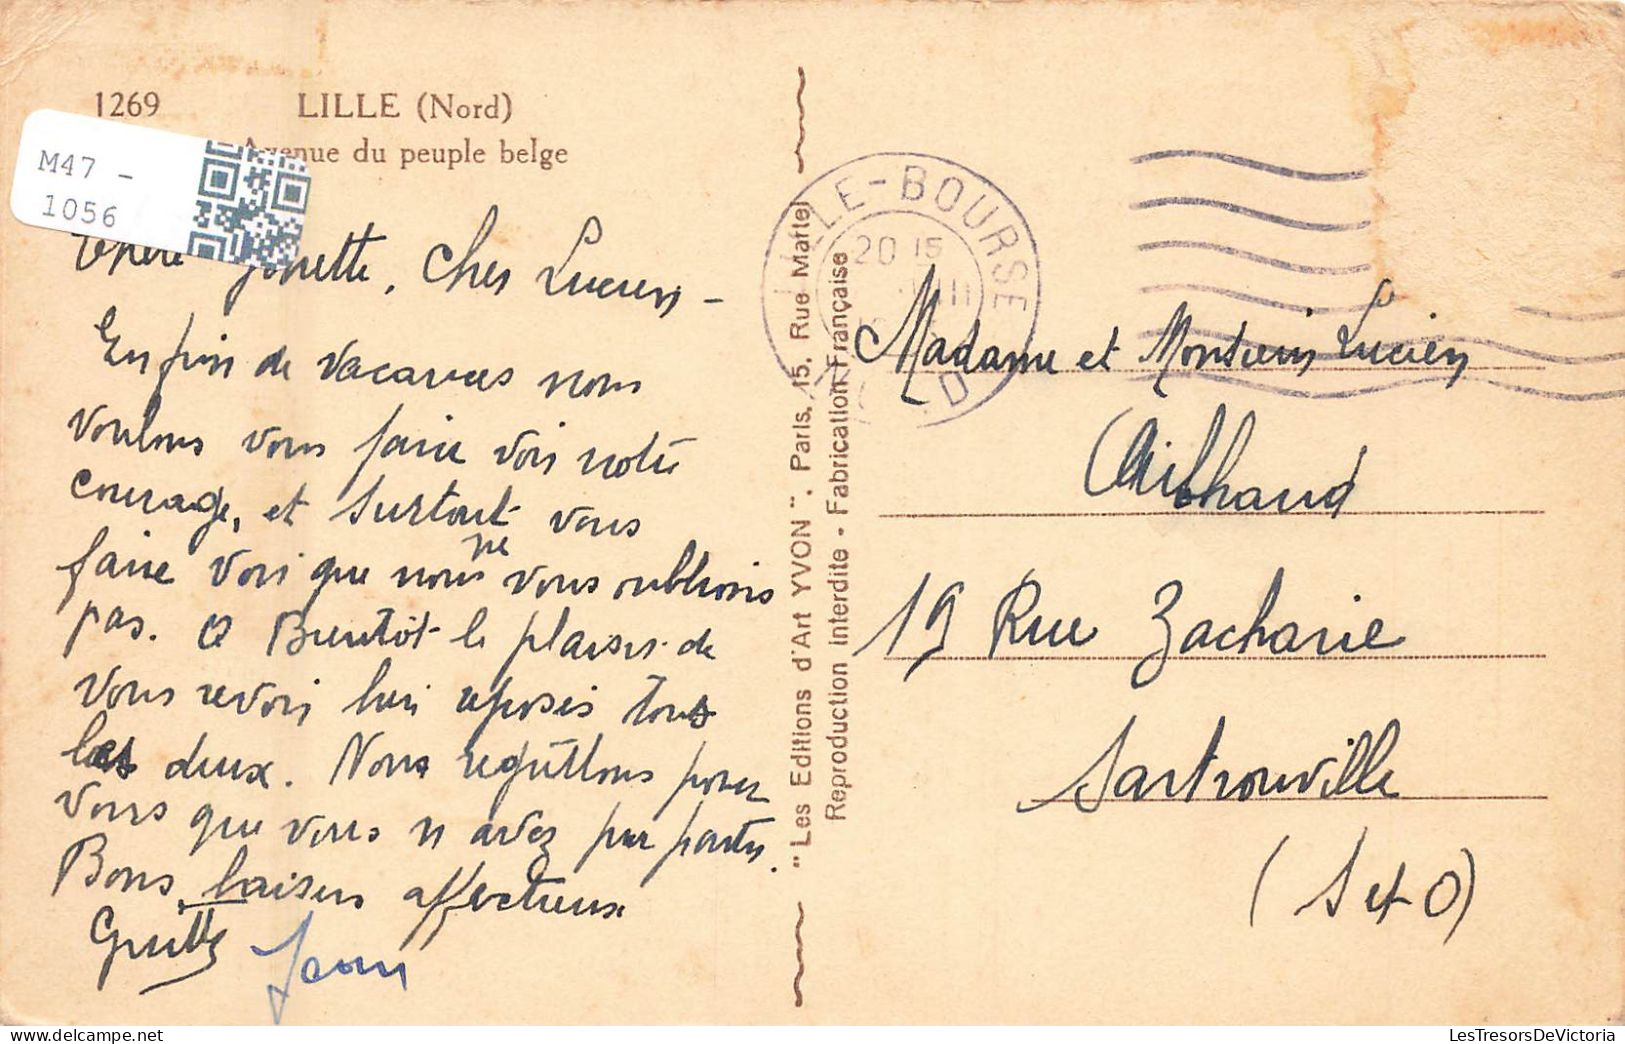 1269 LILLE (Nord)
Avenue du peuple belge
M47 -
1056
Chère Ginette, Cher Lucien -
En fin de vacances nous
voulons vous faire voir notre
courage, et surtout vous
faire voir que nous ne vous oublions
pas. A Bientôt le plaisir de
vous revoir bien reposés tous
les deux. Nous regrettons pour
vous que vous n'avez pu partir.
Bons baisers affectueux
Guitte Jean
"Les Editions d'Art YVON". Paris, 15, Rue Martel
Reproduction Interdite - Fabrication Française
LILLE-BOURSE
20 15
Madame et Monsieur Lucien
Ailhaud
19 Rue Zacharie
Sartrouville
(S et O)
LesTresorsDeVictoria